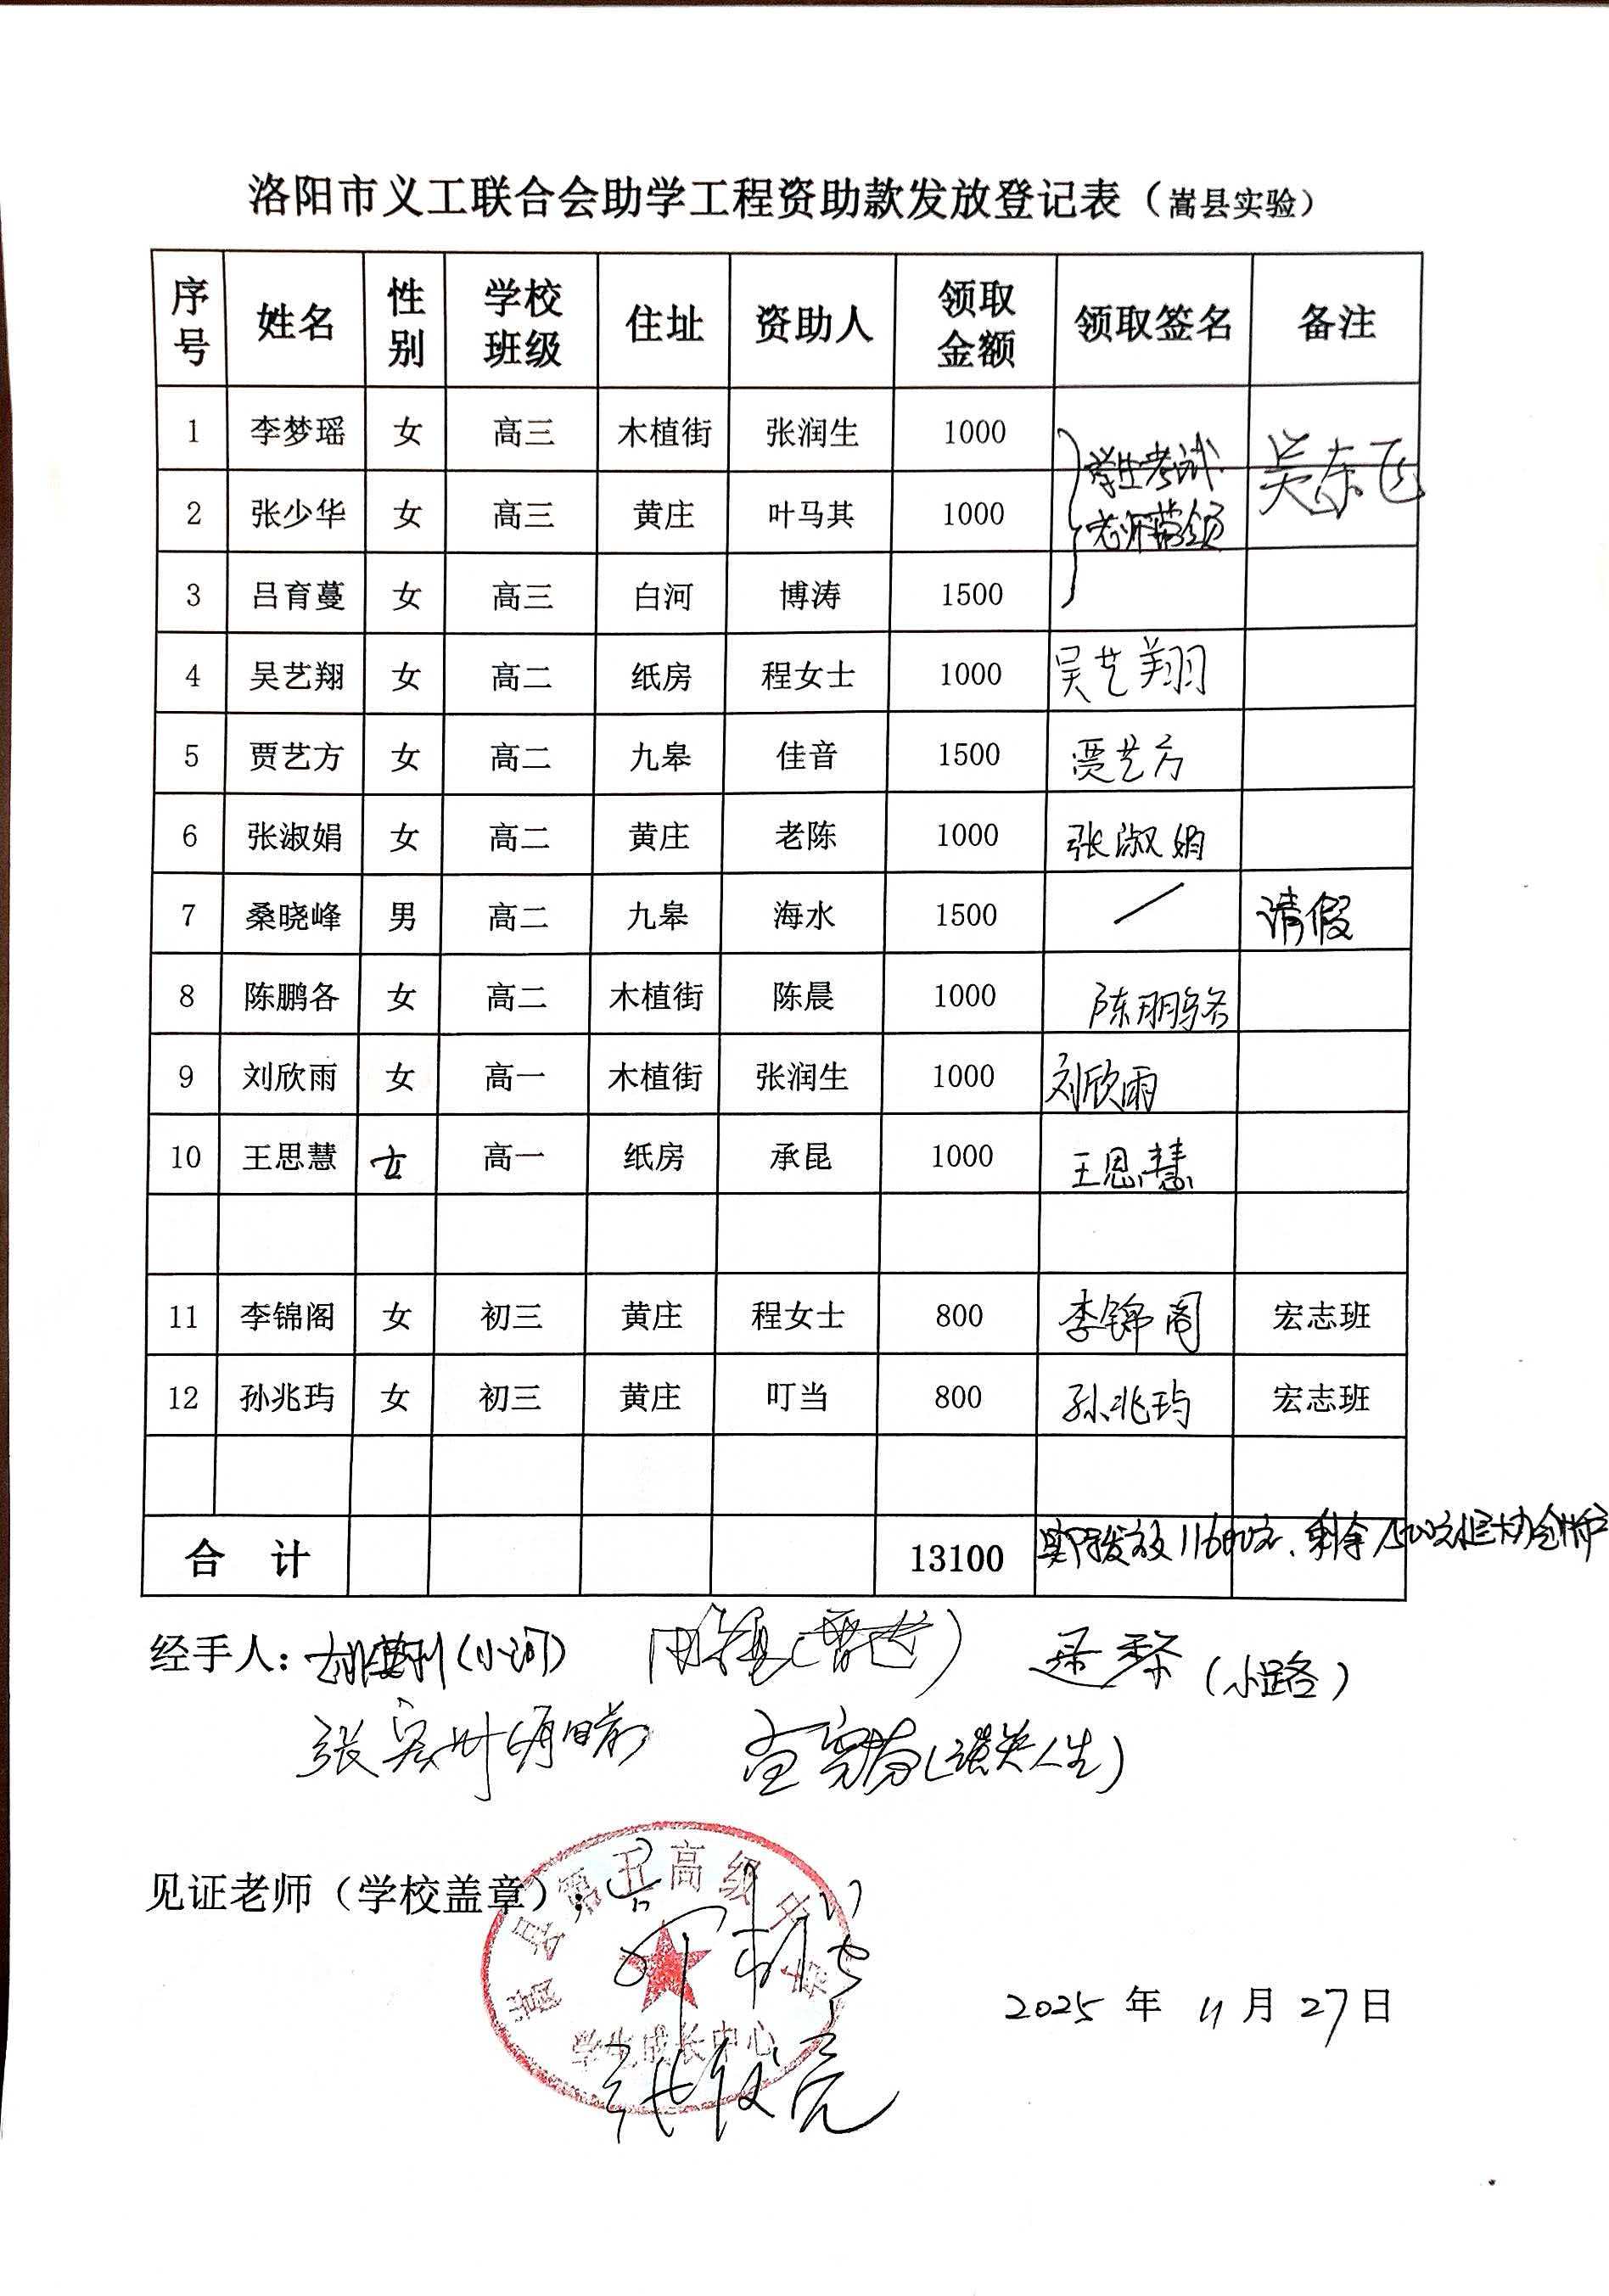 洛阳市义工联合会助学工程资助款发放登记表（嵩县实验）
序号 姓名 性别 学校班级 住址 资助人 领取金额 领取签名 备注
1 李梦瑶 女 高三 木植街 张润生 1000 学生考试 吴东飞
2 张少华 女 高三 黄庄 叶马其 1000 老师带领
3 吕育蔓 女 高三 白河 博涛 1500
4 吴艺翔 女 高二 纸房 程女士 1000 吴艺翔
5 贾艺方 女 高二 九皋 佳音 1500 贾艺方
6 张淑娟 女 高二 黄庄 老陈 1000 张淑娟
7 桑晓峰 男 高二 九皋 海水 1500 / 请假
8 陈鹏各 女 高二 木植街 陈晨 1000 陈鹏各
9 刘欣雨 女 高一 木植街 张润生 1000 刘欣雨
10 王思慧 女 高一 纸房 承昆 1000 王思慧
11 李锦阁 女 初三 黄庄 程女士 800 李锦阁 宏志班
12 孙兆玙 女 初三 黄庄 叮当 800 孙兆玙 宏志班
合 计 13100 实际发放11600元、剩余1500元
经手人： （小河） （小路）
张 （人生）
见证老师（学校盖章）：
嵩县第五高级中学
学生成长中心
2025 年 11 月 27 日